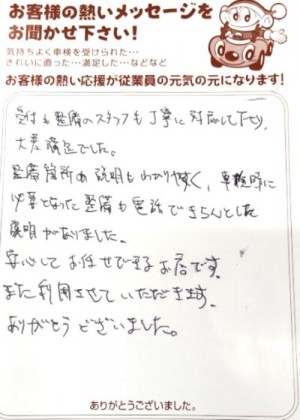 お客様の熱いメッセージを
お聞かせ下さい!
気持ちよく車検を受けられた…
きれいに直った…満足した…などなど
お客様の熱い応援が従業員の元気の元になります!
受付も整備のスタッフも丁寧に対応して下さり、
大変満足でした。
整備箇所の説明もわかりやすく、車検時に
必要となった整備も電話できちんとした
説明がありました。
安心してお任せできるお店です。
また利用させていただきます。
ありがとうございました。
ありがとうございました。